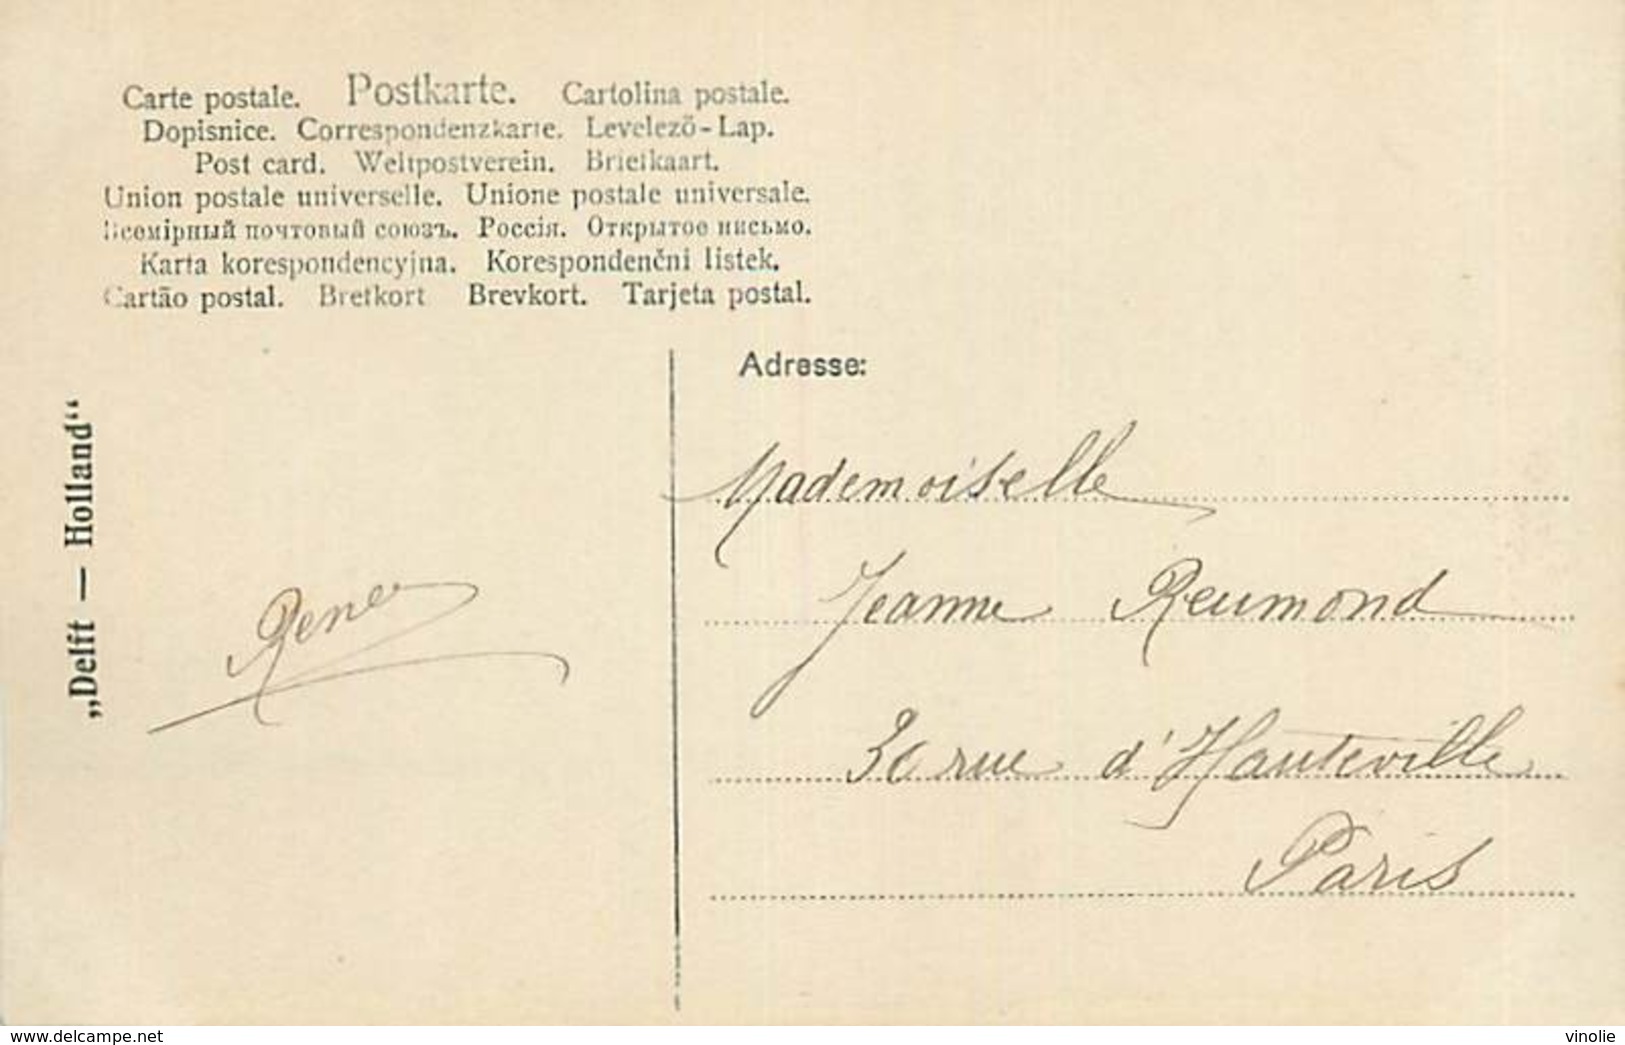 Carte postale. Postkarte. Cartolina postale.
Dopisnice. Correspondenzkarte. Levelező-Lap.
Post card. Weltpostverein. Briefkaart.
Union postale universelle. Unione postale universale.
Всемірный почтовый союзъ. Россія. Открытое письмо.
Karta korespondencyjna. Korespondenčni listek.
Cartão postal. Bretkort Brevkort. Tarjeta postal.
„Delft — Holland“
Adresse:
Mademoiselle
Jeanne Reumond
30 rue d'Hauteville
Paris
Rene
delcampe.net
vinolie